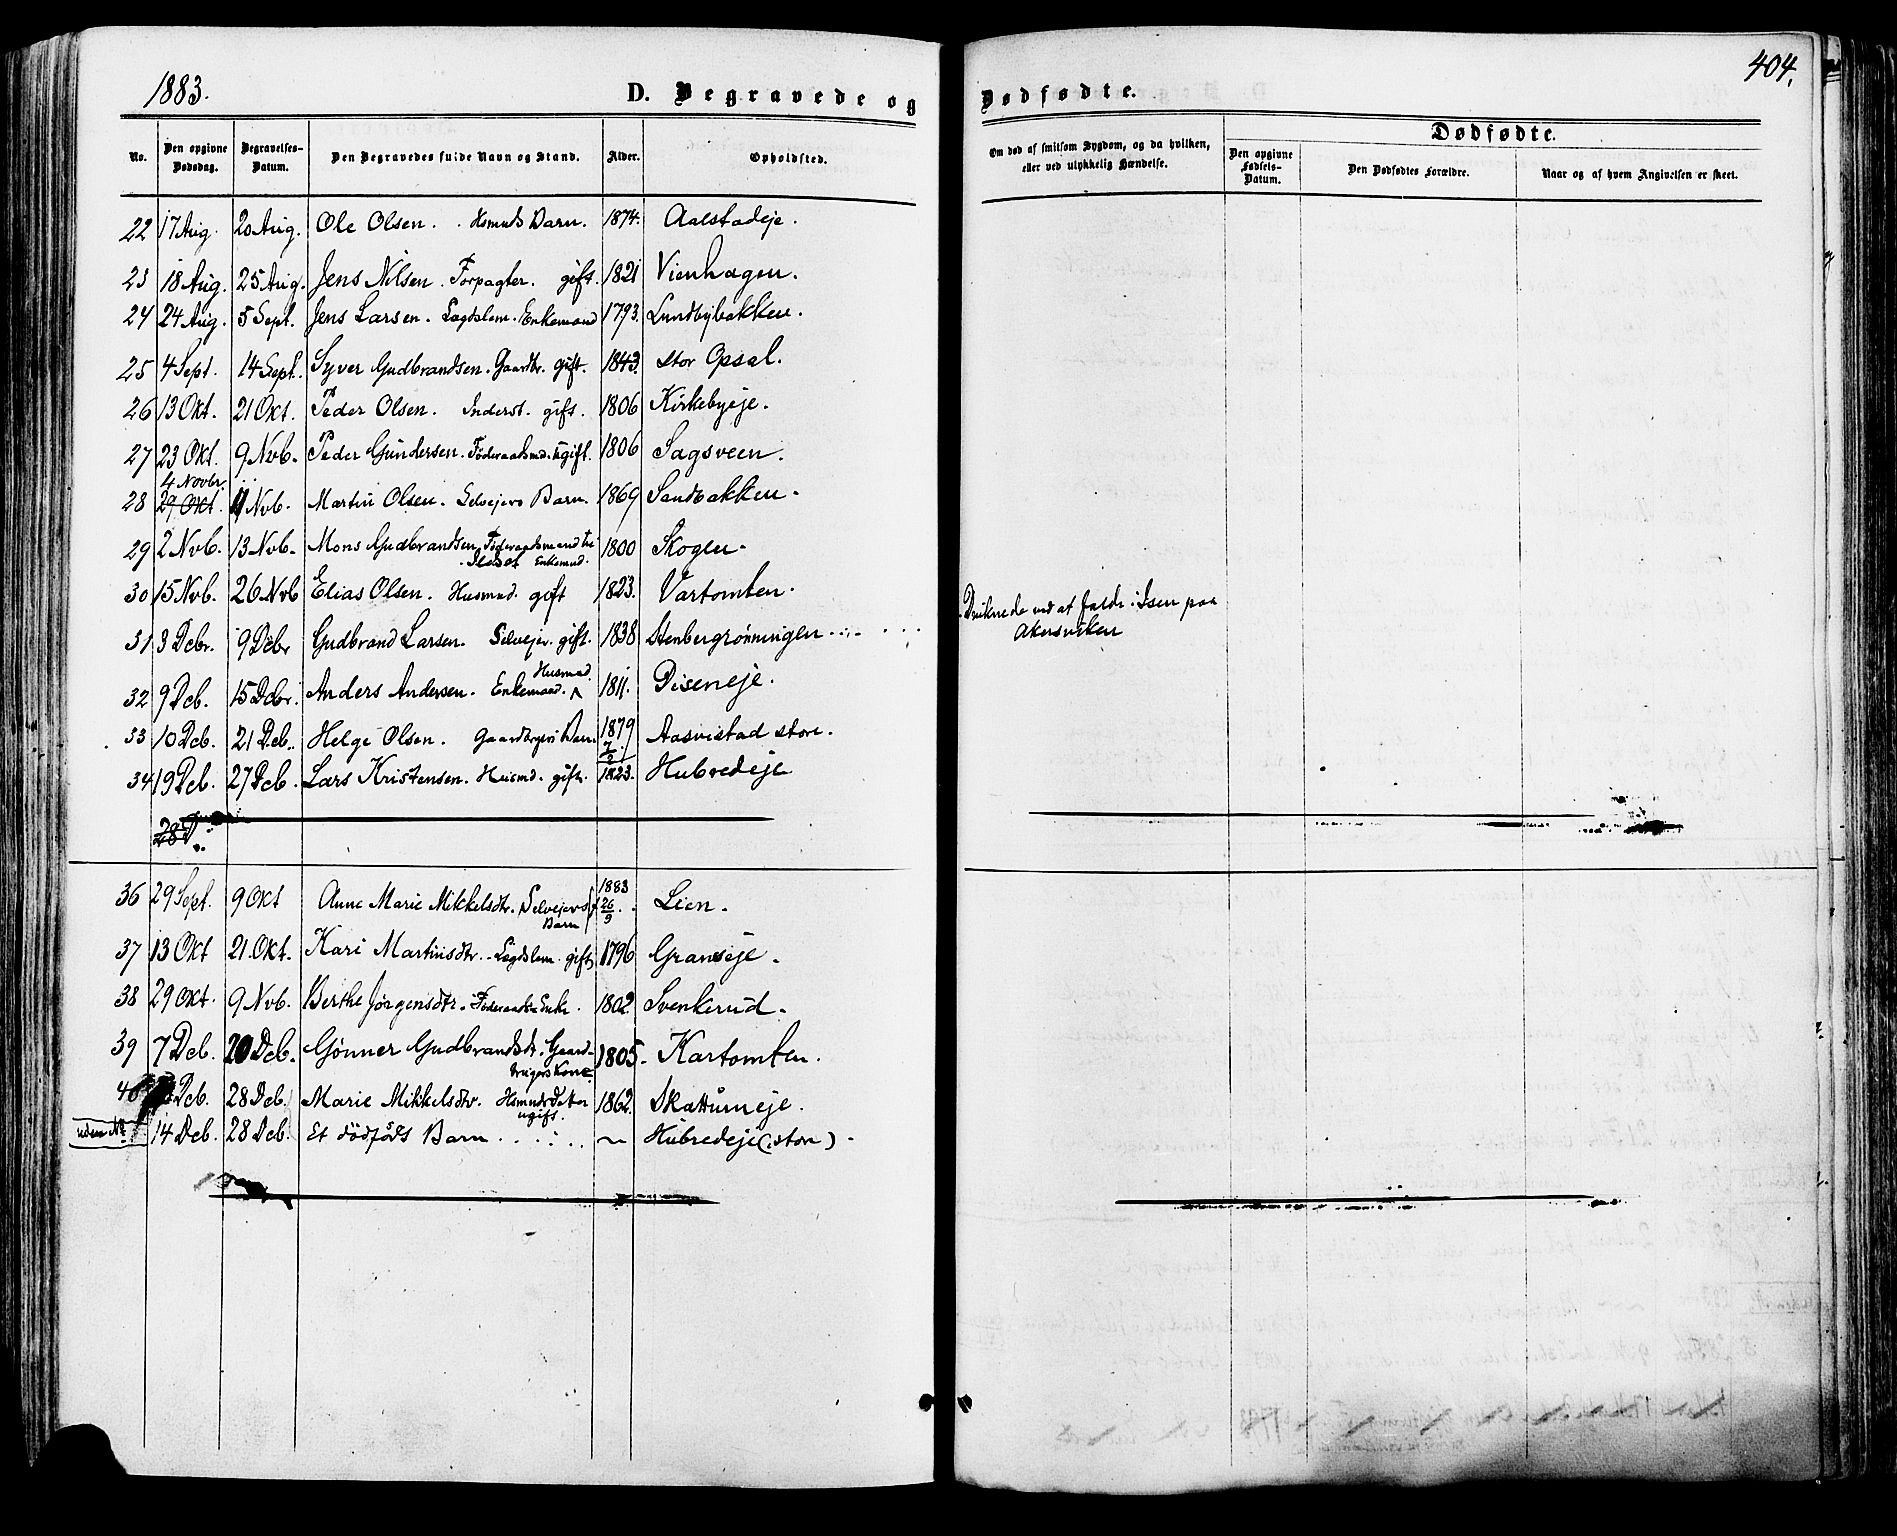 1883.
D. Begravede og Dødfødte.
404.
No.
Den opgivne Dødsdag.
Begravelses-Datum.
Den Begravedes fulde Navn og Stand.
Alder.
Opholdsted.
Om død af smitsom Sygdom, og da hvilken, eller ved ulykkelig Hændelse.
Dødfødte.
Den opgivne Fødsels-Datum.
Den Dødfødtes Forældre.
Naar og af hvem Angivelsen er skeet.
22 17 Aug. 20 Aug. Ole Olsen. Hsmnds Barn. 1874. Aalstadeje.
23 18 Aug. 25 Aug. Jens Nilsen. Forpagter. gift. 1821 Vienhagen.
24 24 Aug. 5 Sept. Jens Larsen. Lagdslem. Enkemand 1793. Lundbybakken.
25 4 Sept. 14 Sept. Syver Gudbrandsen. Gaardbr. gift. 1843. stor Opsal.
26 13 Okt. 21 Okt. Peder Olsen. Inderst. gift. 1806 Kirkebyeje.
27 23 Okt. 9 Nvb. Peder Gundersen. Føderaadsmd. ugift. 1806 Sagsveen.
4 Novbr.
28 29 Okt. 11 Nvb. Martin Olsen. Selvejers Barn. 1869 Sandbakken.
29 2 Nvb. 13 Nvb. Mons Gudbrandsen Føderaadsmand Enkemnd. 1800 Skogen.
30 15 Nvb. 26 Nvb Elias Olsen. Husmnd. gift 1823. Vartomten.
31 3 Debr. 9 Debr Gudbrand Larsen. Selvejer. gift. 1838 Stenbergrønningen. Druknede ved at falde i Isen paa
Akersviken
32 9 Deb. 15 Debr. Anders Andersen. Enkemand. Husmnd. 1811. Diseneje.
33 10 Deb. 21 Deb. Helge Olsen. Gaardbrgers Barn 1879 7/2. Aasvistad store.
34 19 Deb. 27 Deb. Lars Kristensen. Husmd. gift. 1823. Hubredeje
28 D.
36 29 Sept. 9 Okt Anne Marie Mikkelsdtr. Selvejers Barn f 1883 26/9. Lien.
37 13 Okt 21. Okt. Kari Martinsdtr. Lagdslem. gift 1796 Granseje.
38 29 Okt. 9 Nvb. Berthe Jørgensdtr. Føderaads Enke. 1802 Svenkerud.
39 7 Deb. 20 Deb. Gønner Gudbrandsdt. Gaardbrugers Kone 1805. Kartomten.
40 Deb. 28 Deb. Marie Mikkelsdtr. Hsmnds Datter ugift. 1862. Skattumeje.
uden No 14 Deb. 28 Deb. Et dödföds Barn Hubredeje (store).